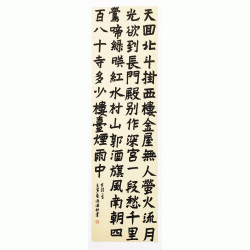 天回北斗掛西樓金屋無人螢火流月
光欲到長門殿別作深宮一段愁千里
鶯啼綠暎紅水村山郭酒旗風南朝四
百八十寺多少樓臺煙雨中